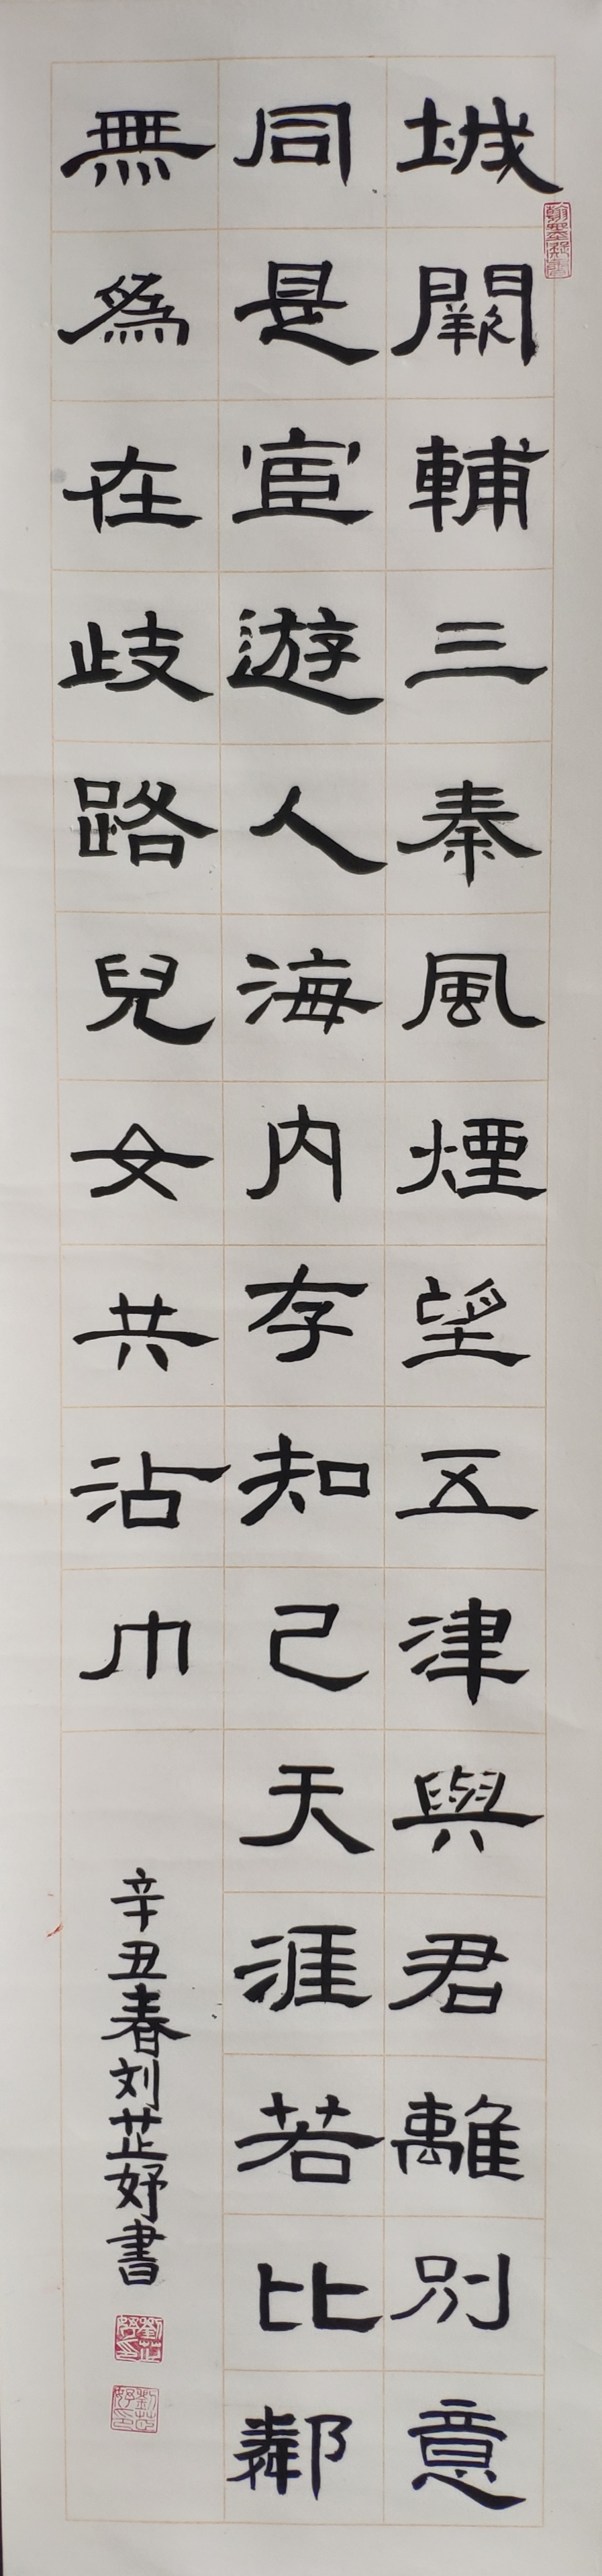 城闕輔三秦風煙望五津與君離別意
同是宦遊人海內存知己天涯若比鄰
無為在歧路兒女共沾巾
辛丑春刘芷妤書